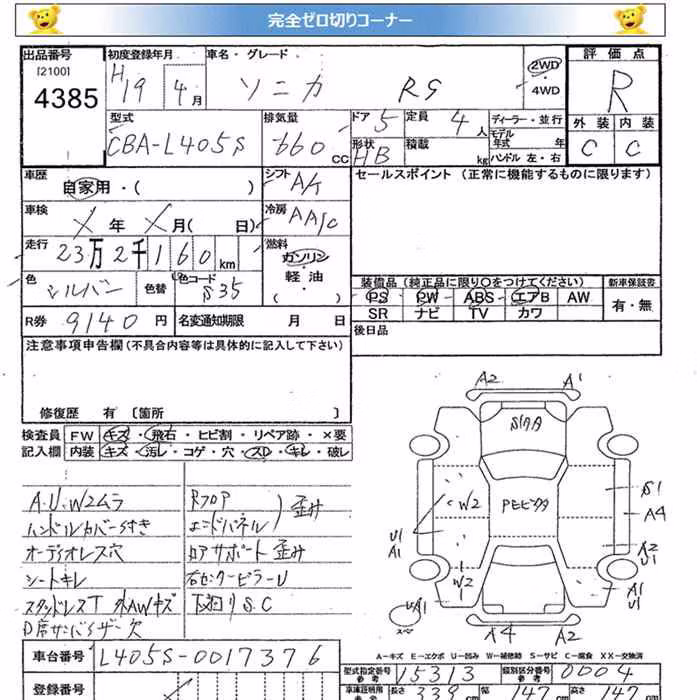 完全ゼロ切りコーナー
出品番号 初度登録年月 車名・グレード 評価点
[2100]
4385 H19 4月 ソニカ RS 2WD 4WD R
型式 排気量 ドア 5 定員 4人 ディーラー・並行 外装 内装
CBA-L405S 660cc 形状 HB 積載 kg モデル年式 年 ハンドル 左・右 C C
車歴 自家用・( ) シフト A/T セールスポイント (正常に機能するものに限ります)
車検 X年 X月( 日) 冷房 AAC
走行 23万2千160km 燃料 ガソリン 軽油 ( )
色 シルバー 色替 色コード S35
装備品(純正品に限り○をつけてください) 新車保証書
PS PW ABS エアB AW 有・無
SR ナビ TV カワ
R券 9140円 名変通知期限 月 日 後日品
注意事項申告欄(不具合内容等は具体的に記入して下さい)
修復歴 有 [箇所 ]
検査員 FW キズ・飛石・ヒビ割・リペア跡・×要
記入欄 内装 キズ・汚レ・コゲ・穴・スレ・キレ・破レ
A.U.W2ムラ Rフロア
ハンドルカバー付き エンドパネル 歪み
オーディオレス穴 コアサポート歪み
シートキレ 右センターピラーU
スタッドレスT 外AWキズ 下廻りS.C
D席サンバイザー欠
A2 A1
W2
S1
A4
U1
A1
A2
U1
W2
A1
U1
UA1
A4 A2
A-キズ E-エクボ U-凹み W-補修跡 S-サビ C-腐食 XX-交換済
車台番号 L405S-0017376 型式指定番号 15313 類別区分番号 0004
参考 参考
登録番号 車庫証明用 長さ 339cm 幅 147cm 高さ 147cm